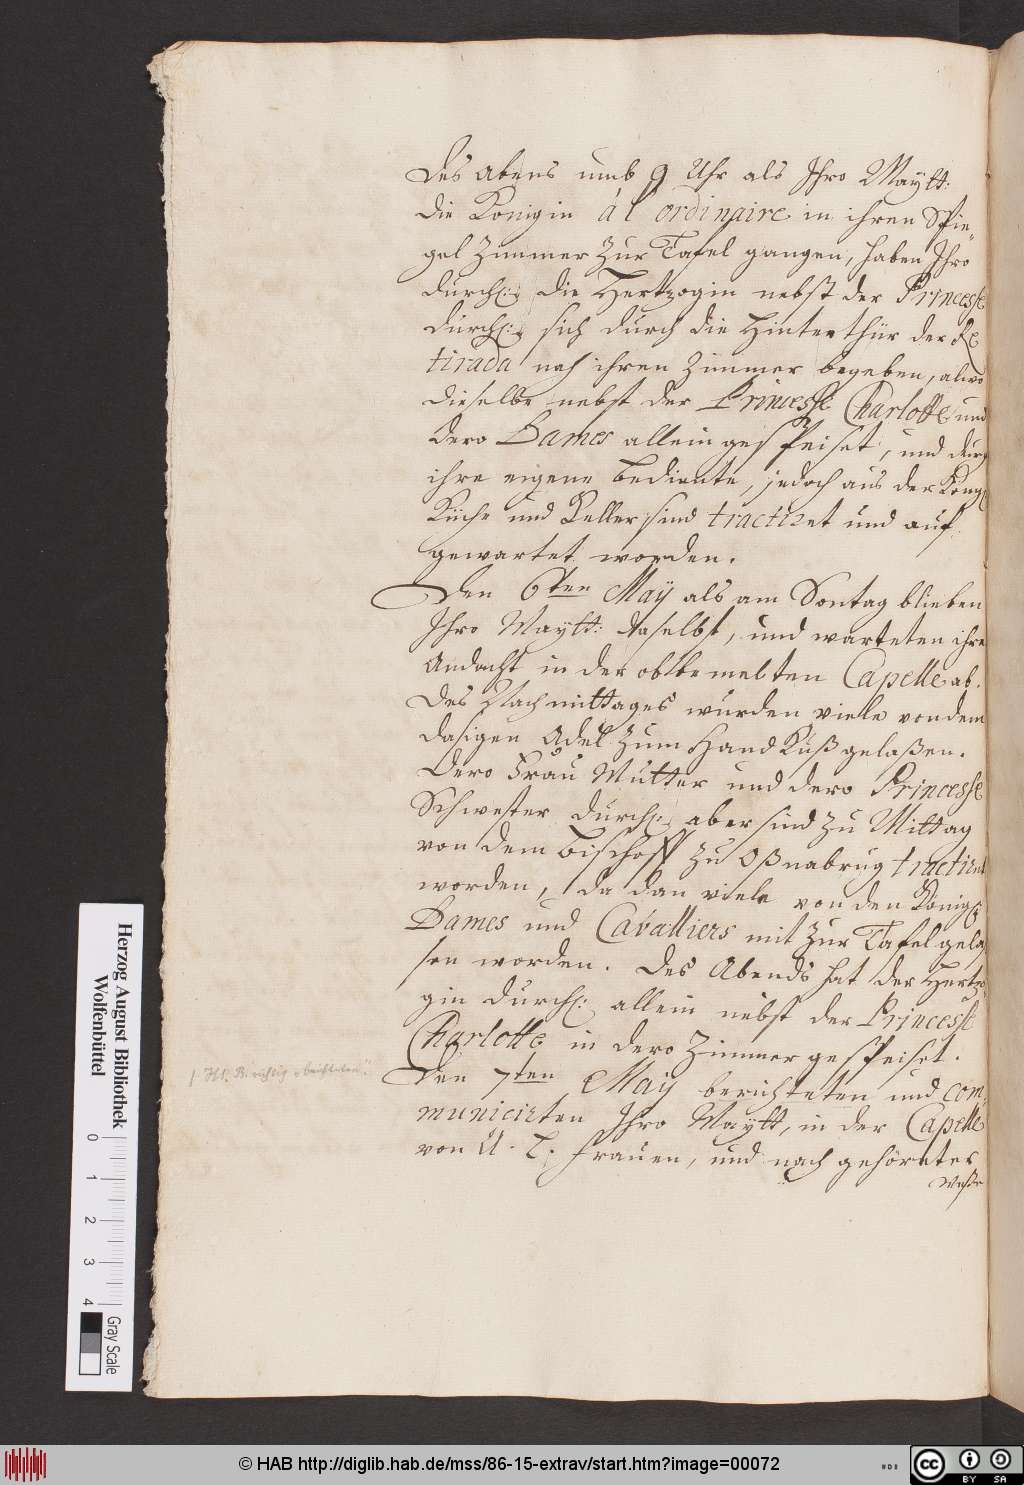 Des Abens umb 9 Uhr als Ihro Maytt:
die Konigin à l'ordinaire in ihren Spie-
gel Zimmer zur Tafel gangen, haben Ihro
Durchl: die Hertzogin nebst der Princesse
Durchl: sich durch die Hinterthür der Re
tirada nach ihren Zimmer begeben, alwo
dieselbe nebst der Princesse Charlotte und
dero Dames allein gespeiset, und durch
ihre eigene bediente, jedoch aus der Königl
Küche und Keller sind tractiret und auf
gewartet worden.
Den 6ten May als am Sontag blieben
Ihro Maytt: daselbst, und warteten ihre
Andacht in der obbemelten Capelle ab.
Des Nachmittages wurden viele von dem
dasigen Adel zum Hand Kuß gelaßen.
Dero Frau Mutter und dero Princesse
Schwester Durchl: aber sind zu Mittag
von dem Bischoff zu Oßnabrug tractiret
worden, da dan viele von den Königl
Dames und Cavalliers mit zur Tafel gela
sen worden. Des Abends hat der Hertzo-
gin Durchl: allein nebst der Princesse
Charlotte in dero Zimmer gespeiset.
Den 7ten May berichteten und com-
municirten Ihro Maytt, in der Capelle
von U. L. Frauen, und nach gehörter
Meße
Herzog August Bibliothek
Wolfenbüttel
0 1 2 3 4
Gray Scale
© HAB http://diglib.hab.de/mss/86-15-extrav/start.htm?image=00072
CC BY SA